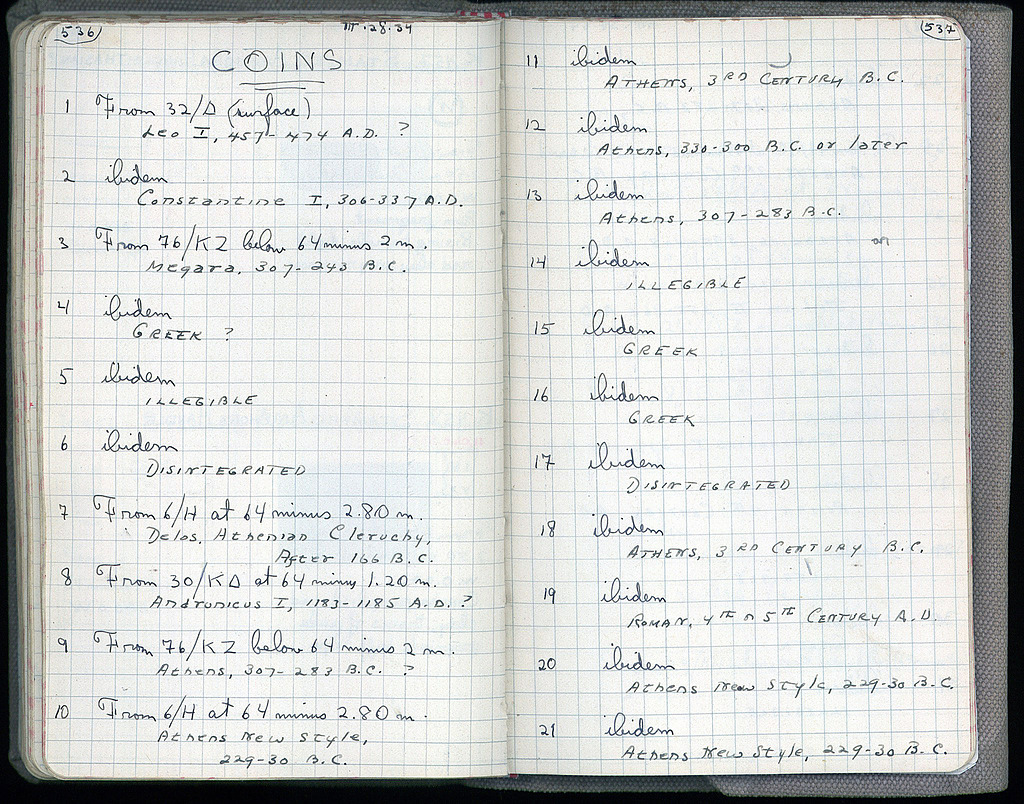 536
III·28·34
COINS
1 From 32/Δ (surface)
Leo I, 457-474 A.D. ?
2 ibidem
Constantine I, 306-337 A.D.
3 From 76/KZ below 64 minus 2 m.
Megara, 307-243 B.C.
4 ibidem
GREEK ?
5 ibidem
ILLEGIBLE
6 ibidem
DISINTEGRATED
7 From 6/H at 64 minus 2.80 m.
Delos, Athenian Cleruchy,
After 166 B.C.
8 From 30/KΔ at 64 minus 1.20 m.
Andronicus I, 1183-1185 A.D. ?
9 From 76/KZ below 64 minus 2 m.
Athens, 307-283 B.C. ?
10 From 6/H at 64 minus 2.80 m.
Athens New Style,
229-30 B.C.
537
11 ibidem
ATHENS, 3RD CENTURY B.C.
12 ibidem
Athens, 330-300 B.C. or later
13 ibidem
Athens, 307-283 B.C.
14 ibidem
ILLEGIBLE
15 ibidem
GREEK
16 ibidem
GREEK
17 ibidem
DISINTEGRATED
18 ibidem
ATHENS, 3RD CENTURY B.C.
19 ibidem
ROMAN, 4TH or 5TH CENTURY A.D.
20 ibidem
Athens New Style, 229-30 B.C.
21 ibidem
Athens New Style, 229-30 B.C.